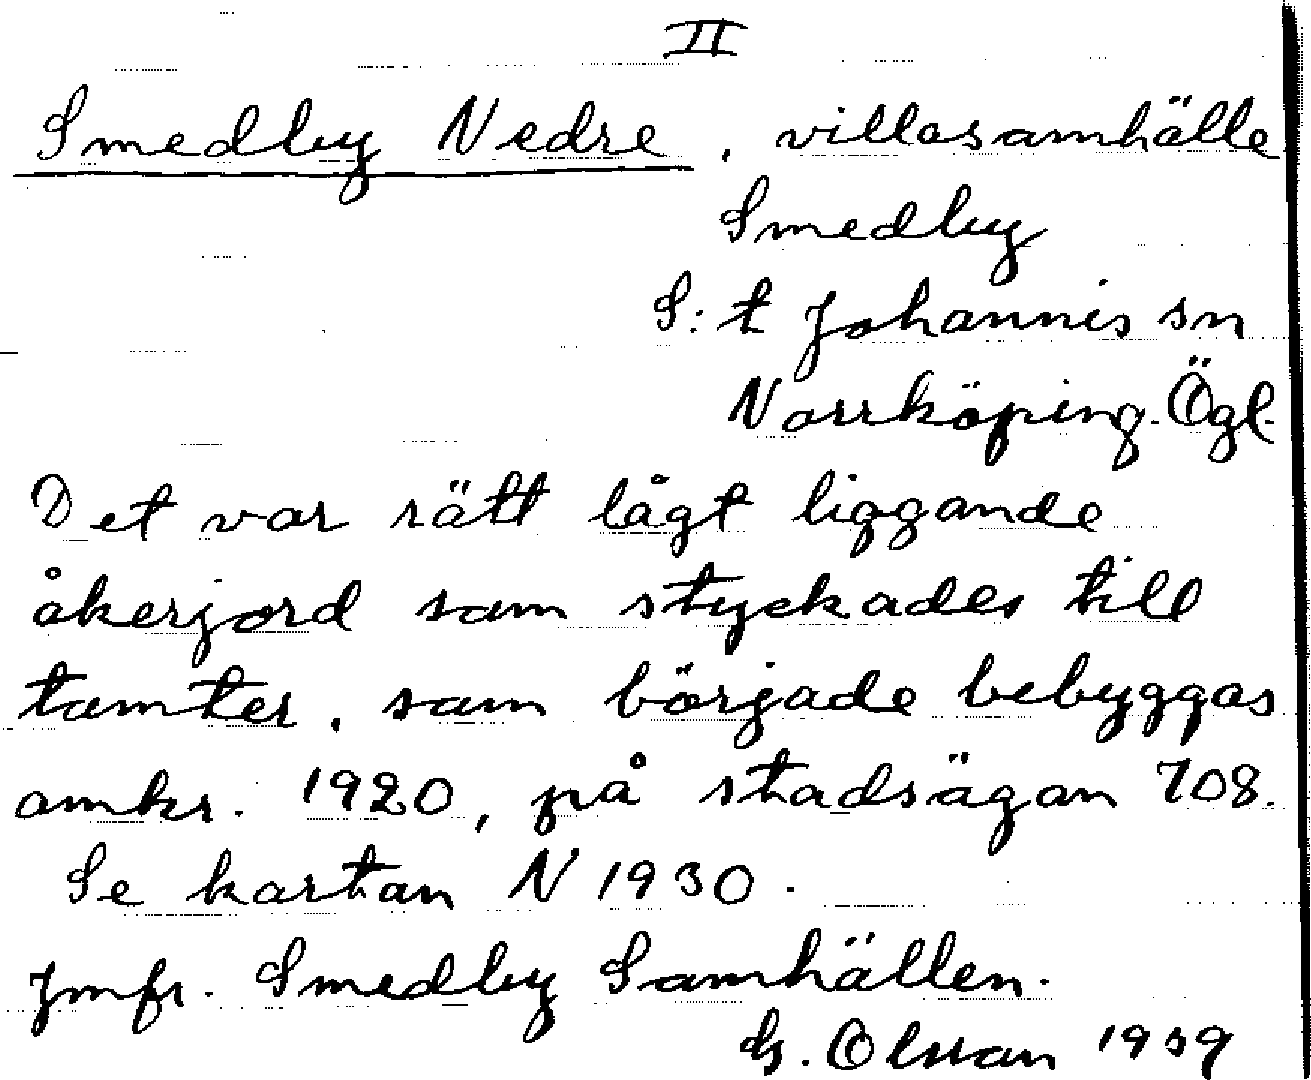 II
Smedby Nedre, villasamhälle
Smedby
S:t Johannis sn
Norrköping. Ögl.
Det var rätt lågt liggande
åkerjord som styckades till
tomter, som började bebyggas
omkr. 1920, på stadsägan 708.
Se kartan N 1930.
Jmfr. Smedby Samhällen.
G. Olsson 1939